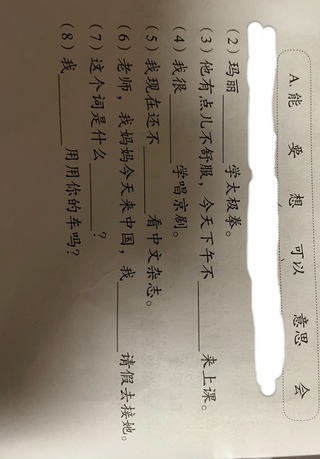 A. 能 要 想 可以 意思 会
(2) 玛丽______学太极拳。
(3) 他有点儿不舒服，今天下午不______来上课。
(4) 我很______学唱京剧。
(5) 我现在还不______看中文杂志。
(6) 老师，我妈妈今天来中国，我______请假去接她。
(7) 这个词是什么______？
(8) 我______用用你的车吗？